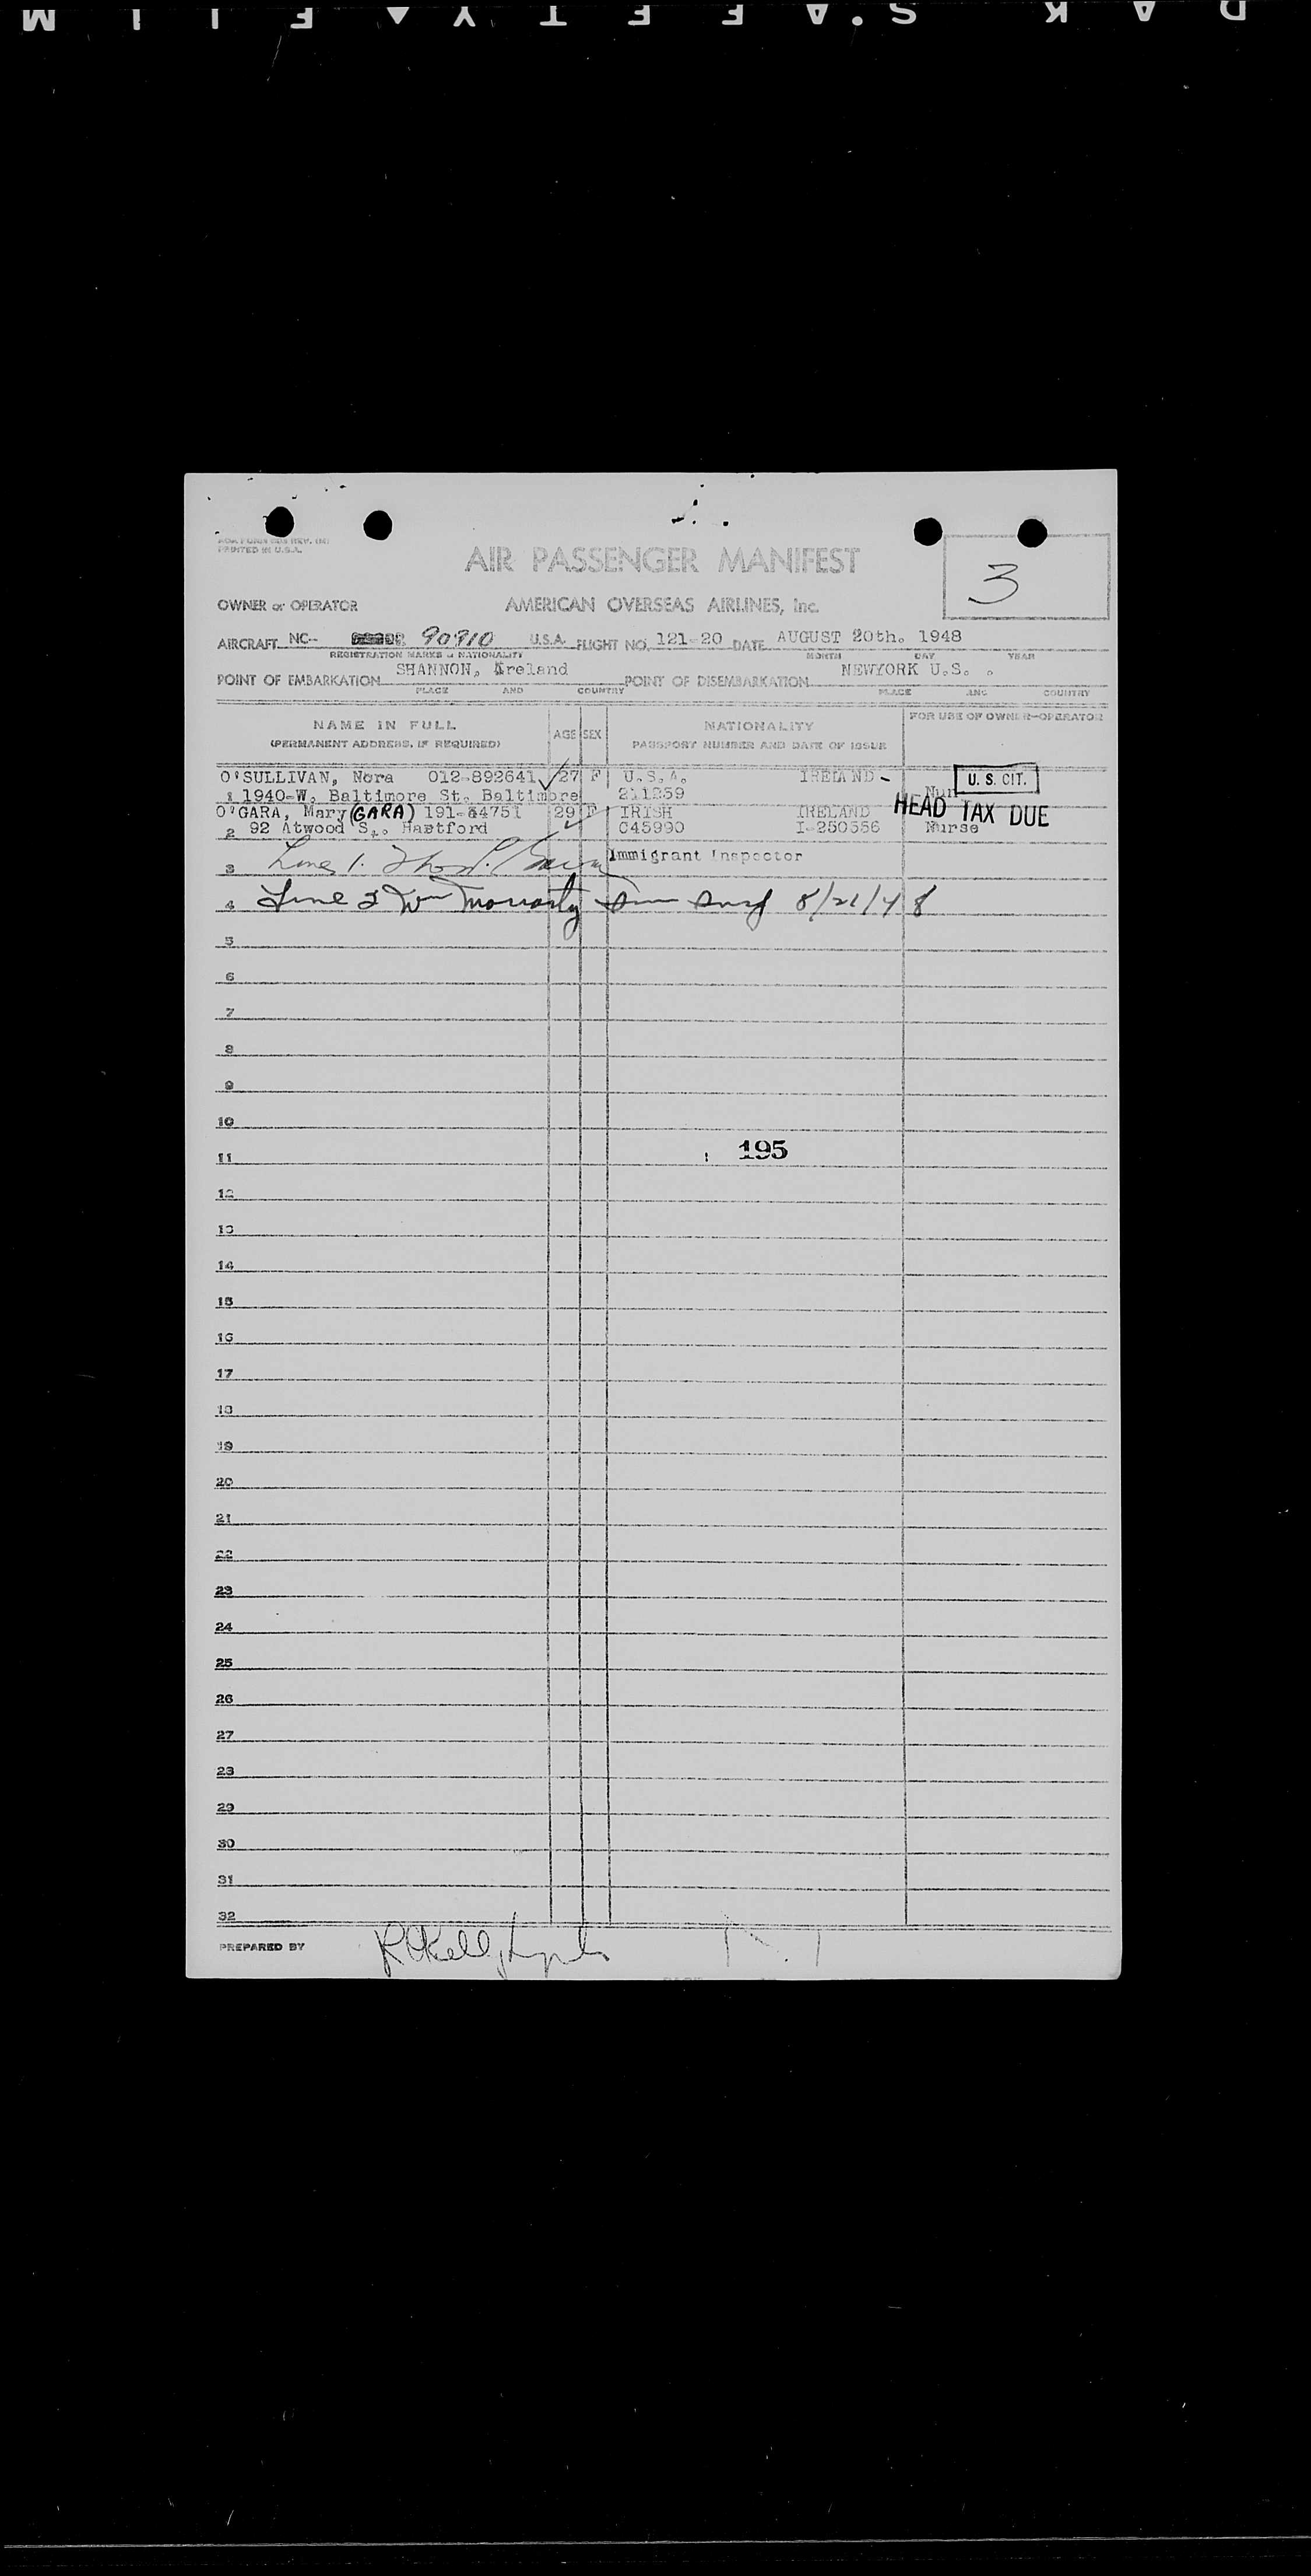 KODAK S.AFETY FILM
3
AOA FORM REV.
PRINTED IN U.S.A.
AIR PASSENGER MANIFEST
OWNER or OPERATOR AMERICAN OVERSEAS AIRLINES, Inc.
AIRCRAFT NC-- 90910 U.S.A. FLIGHT NO. 121-20 DATE AUGUST 20th. 1948
REGISTRATION MARKS & NATIONALITY MONTH DAY YEAR
POINT OF EMBARKATION SHANNON, Ireland POINT OF DISEMBARKATION NEWYORK U.S. .
PLACE AND COUNTRY PLACE AND COUNTRY
NAME IN FULL AGE SEX NATIONALITY FOR USE OF OWNER-OPERATOR
(PERMANENT ADDRESS, IF REQUIRED) PASSPORT NUMBER AND DATE OF ISSUE
O'SULLIVAN, Nora 012-892641 27 F U.S.A. IRELAND- U. S. CIT.
1 1940-W. Baltimore St. Baltimore 211259 Nur
O'GARA, Mary (GARA) 191-64751 29 F IRISH IRELAND HEAD TAX DUE
2 92 Atwood St. Hartford C45990 I-250556 Nurse
3 Line 1. Thos. Immigrant Inspector
4 Line 2 Wm Moriarty 8/21/48
5
6
7
8
9
10
195
11
12
13
14
15
16
17
18
19
20
21
22
23
24
25
26
27
28
29
30
31
32
PREPARED BY